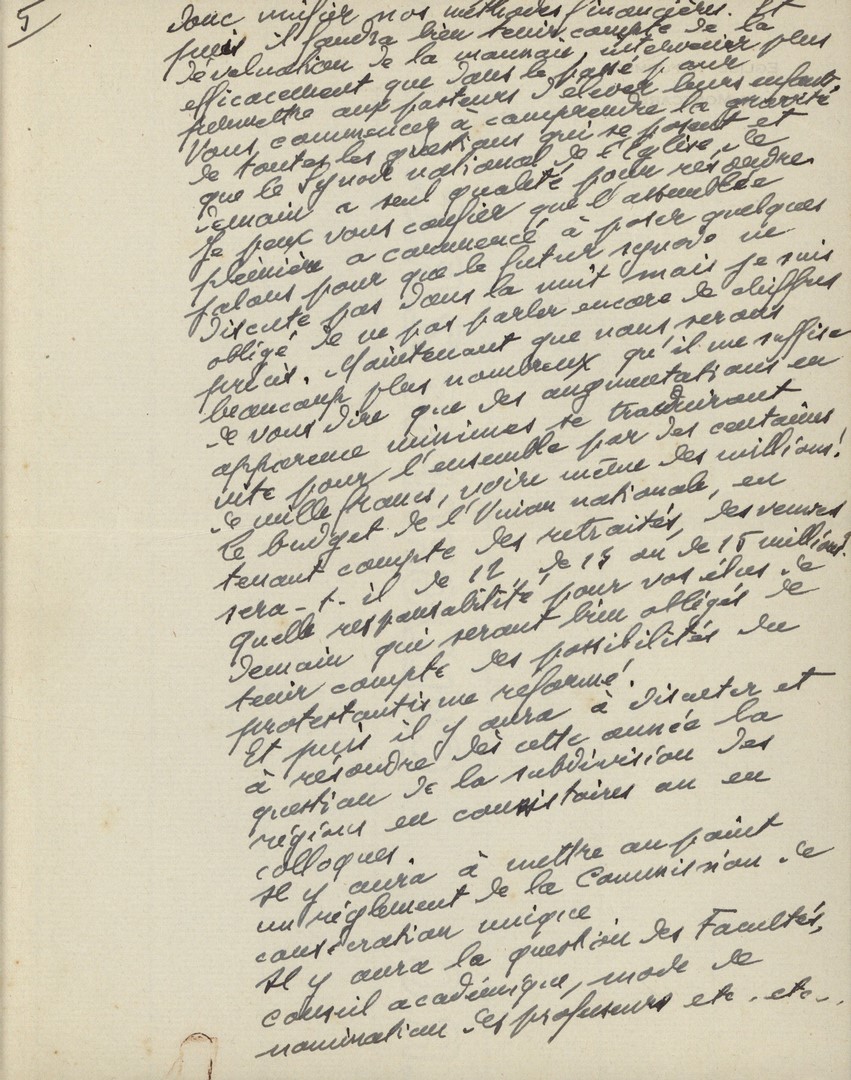 5
donc unifier nos méthodes financières. Et
puis il faudra bien tenir compte de la
dévaluation de la monnaie, intervenir plus
efficacement que dans le passé pour
permettre aux pasteurs d'élever leurs enfants.
Vous commencer à comprendre la gravité
de toutes les questions qui se posent et
que le Synode national de l'Eglise de
demain a seul qualité pour résoudre.
Je peux vous confier que l'assemblée
plénière a commencé à poser quelques
jalons pour que le futur synode ne
discute pas dans la nuit mais je suis
obligé de ne pas parler encore de chiffres
précis. Maintenant que nous serons
beaucoup plus nombreux qu'il me suffise
de vous dire que des augmentations en
apparence minimes se traduiront
vite pour l'ensemble par des centaines
de mille francs, voire même des millions!
Le budget de l'Union nationale, en
tenant compte des retraités, des veuves
sera-t-il de 12 de 13 ou de 15 millions?
quelle responsabilité pour vos élus de
demain qui seront bien obligés de
tenir compte des possibilités du
protestantisme réformé!
Et puis il y aura à discuter et
à résoudre dès cette année la
question de la subdivision des
régions en consistoires ou en
colloques
Il y aura à mettre au point
un règlement de la Commission de
consécration unique
Il y aura la question des Facultés,
conseil académique, mode de
nomination des professeurs etc. etc..